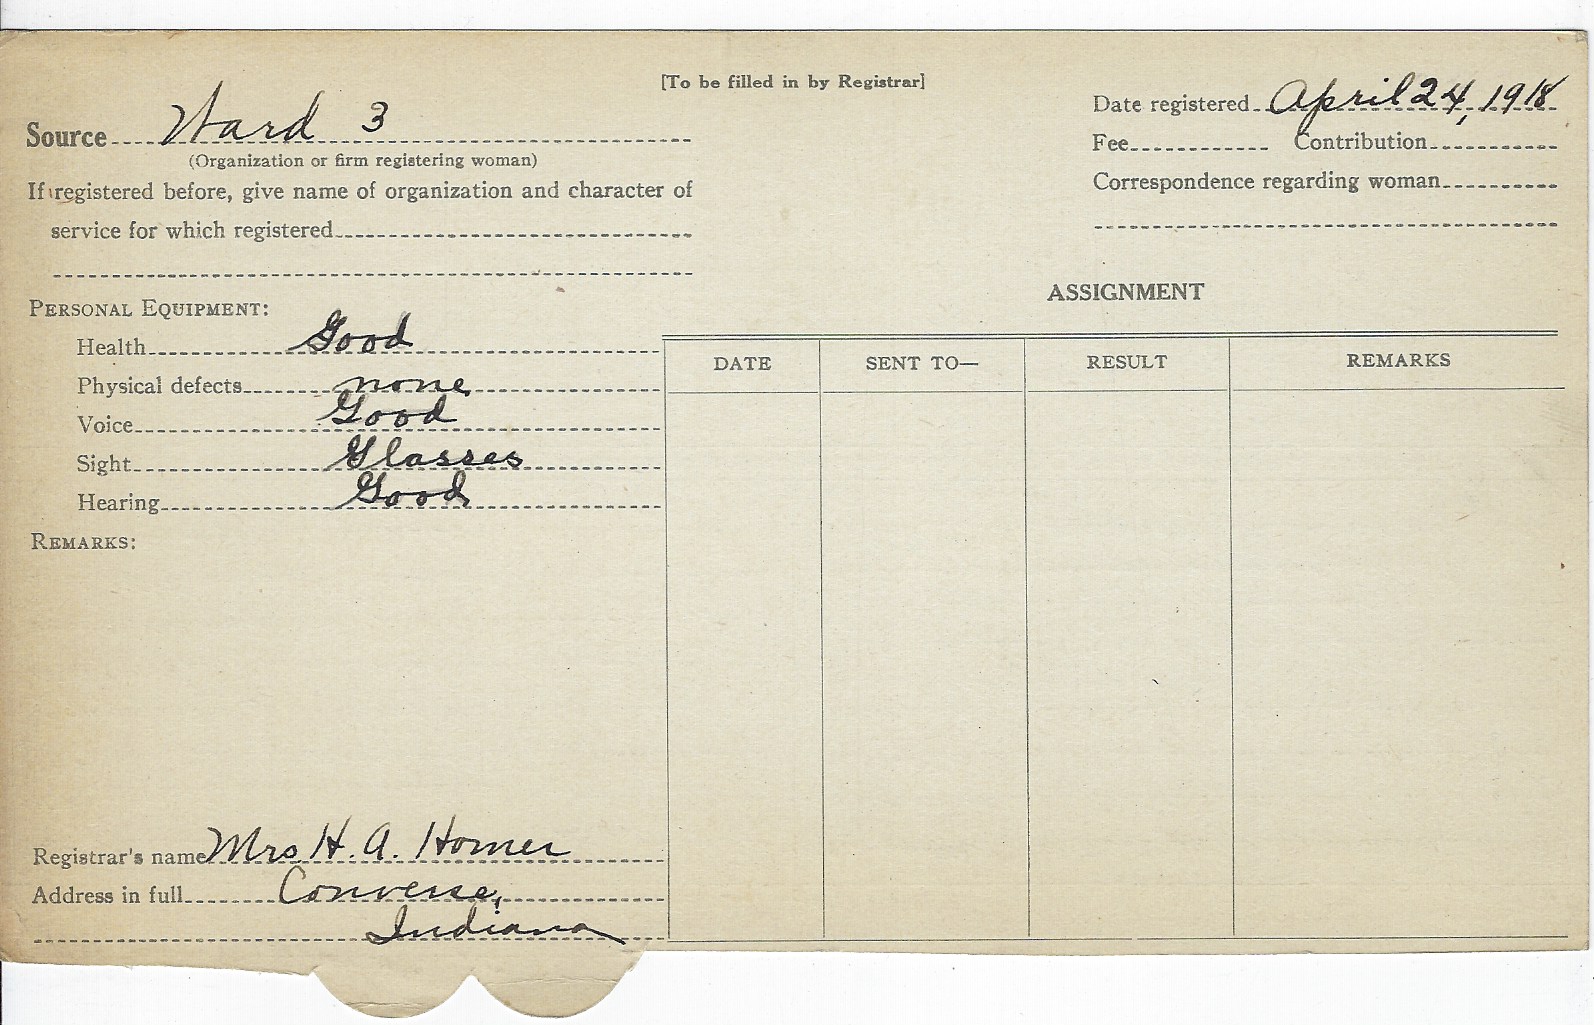 [To be filled in by Registrar]
Source Ward 3
(Organization or firm registering woman)
If registered before, give name of organization and character of
service for which registered
Date registered April 24, 1918
Fee Contribution
Correspondence regarding woman
PERSONAL EQUIPMENT:
Health Good
Physical defects none
Voice Good
Sight Glasses
Hearing Good
REMARKS:
ASSIGNMENT
DATE SENT TO— RESULT REMARKS
Registrar's name Mrs H. A. Horner
Address in full Converse,
Indiana